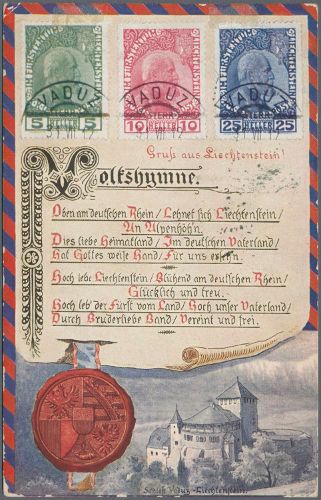 K.K. ÖSTERR. POST IM FÜRSTENTUM LIECHTENSTEIN
5 HELLER 5
K.K. ÖSTERR. POST IM FÜRSTENTUM LIECHTENSTEIN
10 HELLER 10
K.K. ÖSTERR. POST IM FÜRSTENTUM LIECHTENSTEIN
25 HELLER 25
VADUZ
VADUZ
VADUZ
Gruß aus Liechtenstein!
Volkshymne.
Oben am deutschen Rhein / Lehnet sich Liechtenstein /
An Alpenhöhn.
Dies liebe Heimatland / Im deutschen Vaterland /
Hat Gottes weise Hand / Für uns ersehn.
Hoch lebe Liechtenstein / Blühend am deutschen Rhein /
Glücklich und treu.
Hoch leb' der Fürst vom Land / Hoch unser Vaterland /
Durch Bruderliebe Band / Vereint und frei.
Schloß Vaduz - Liechtenstein.